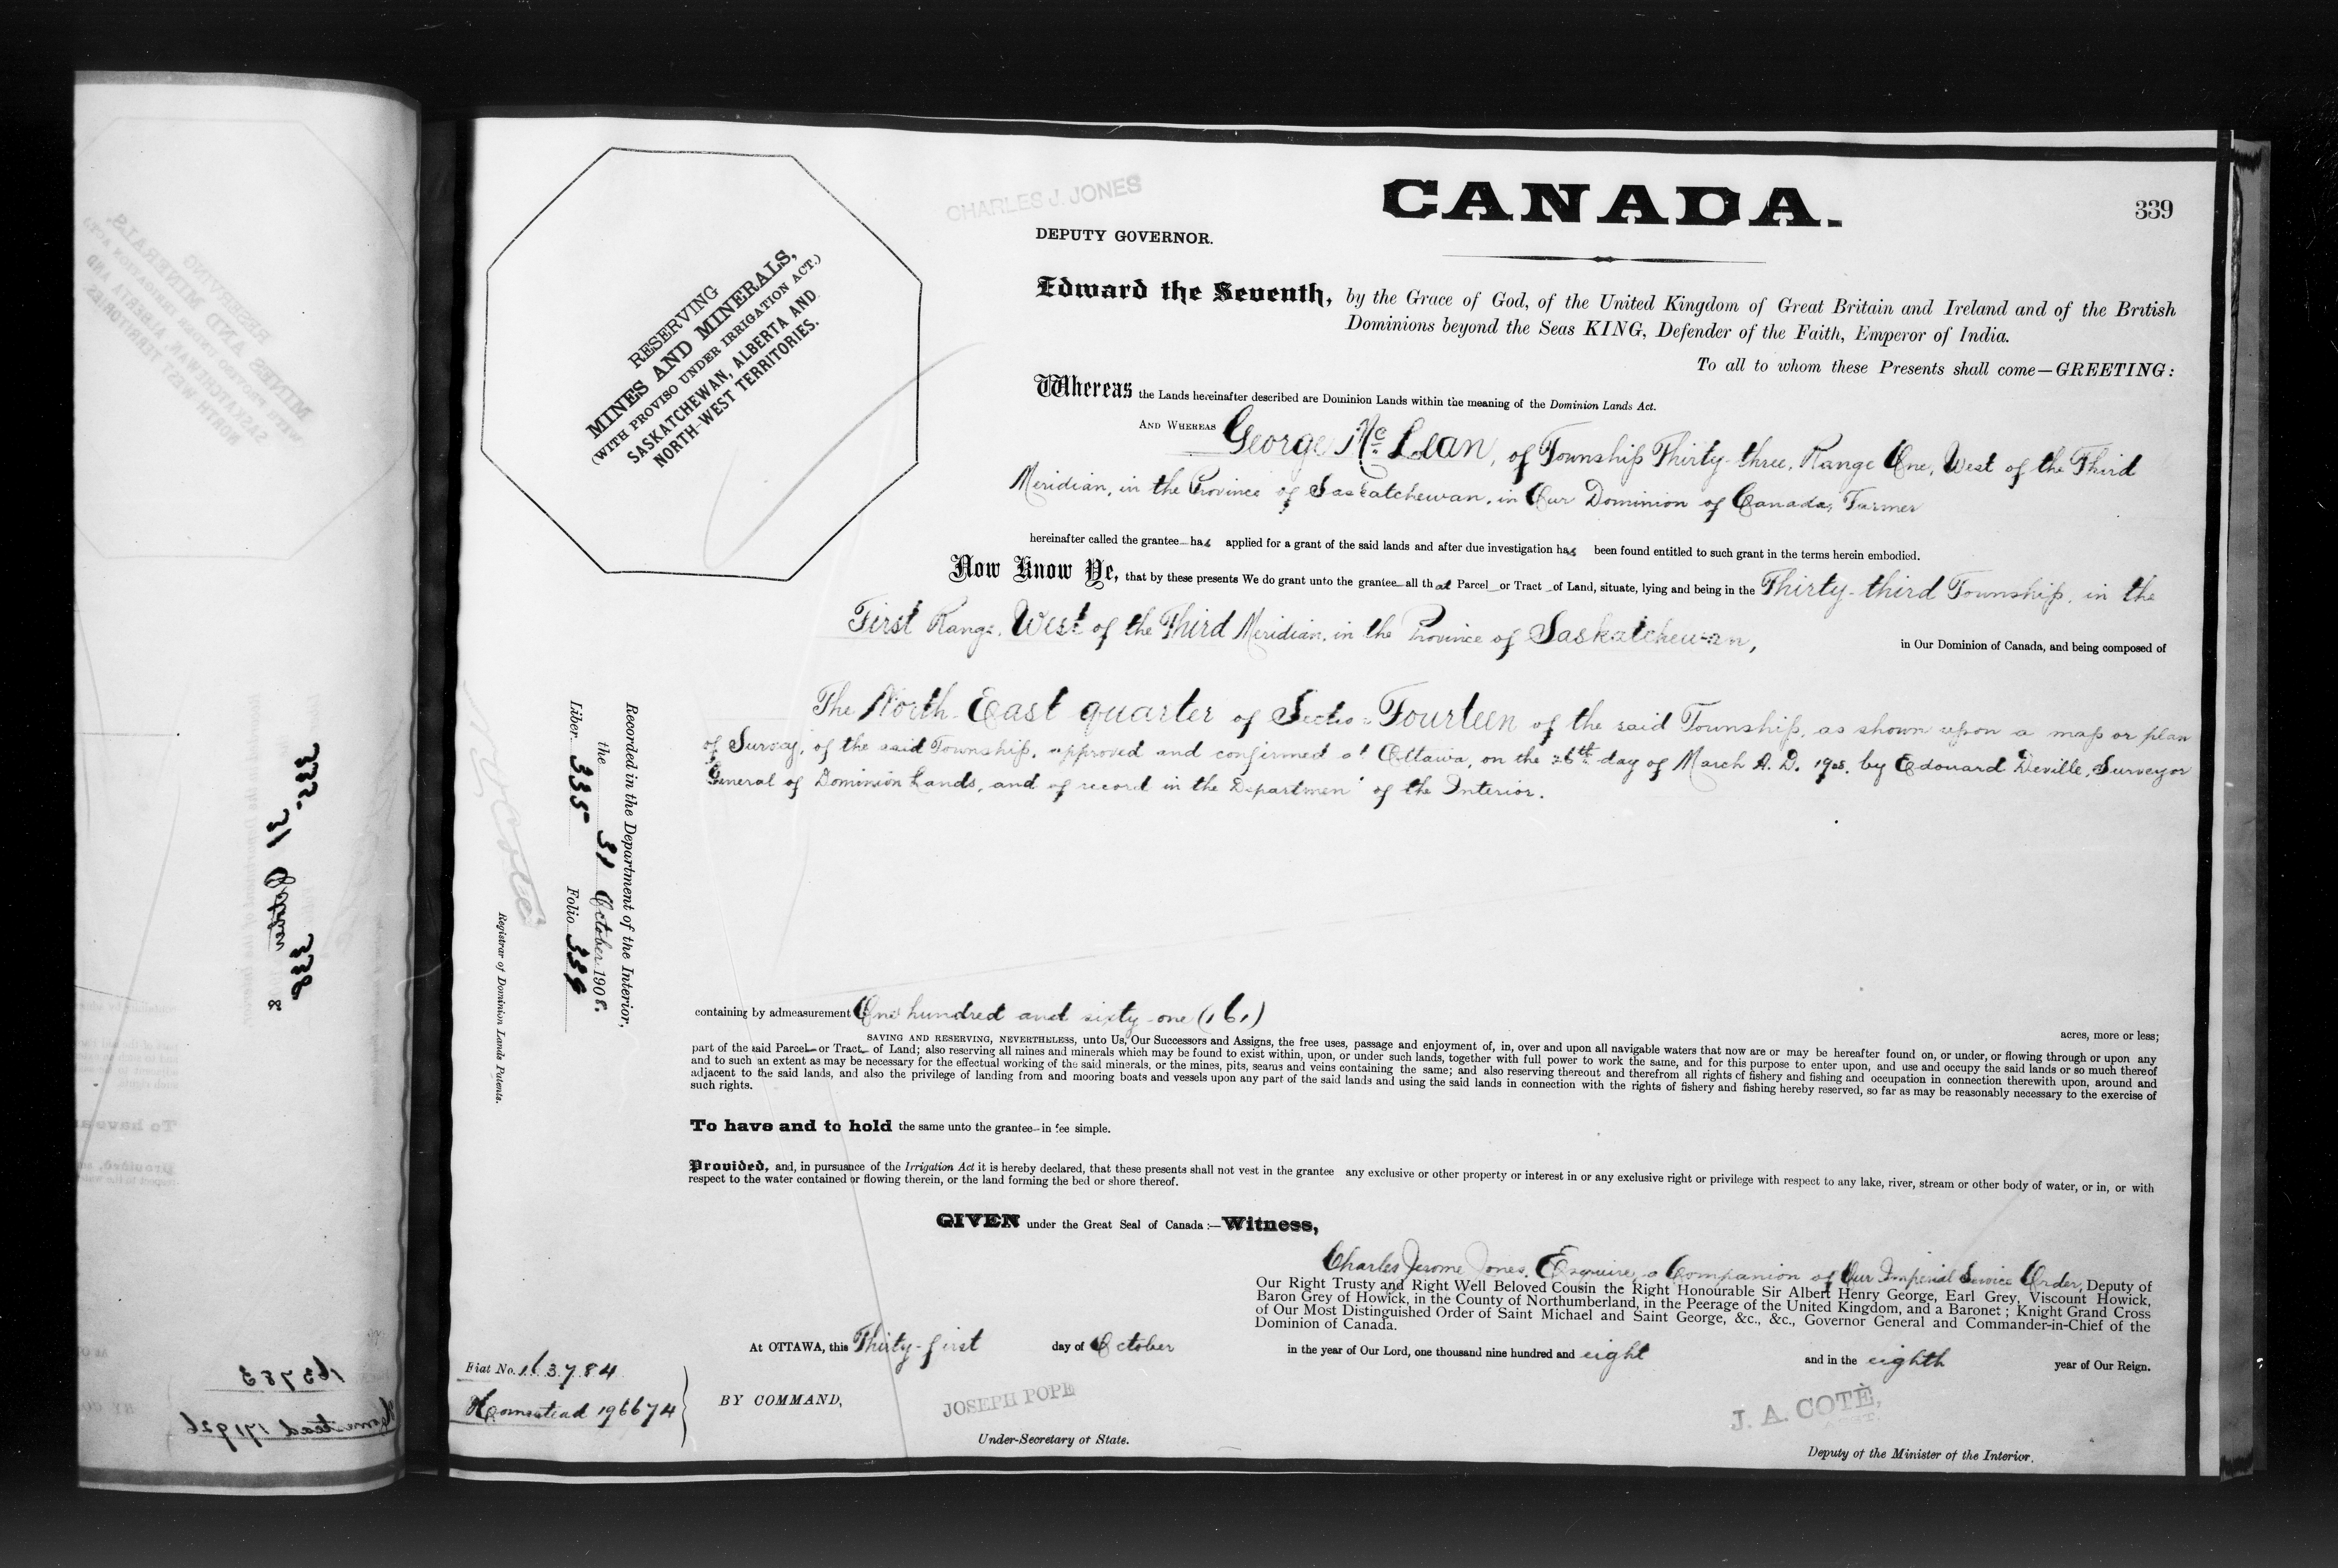 CANADA.
339
CHARLES J. JONES
DEPUTY GOVERNOR.
RESERVING
MINES AND MINERALS,
(WITH PROVISO UNDER IRRIGATION ACT.)
SASKATCHEWAN, ALBERTA AND
NORTH-WEST TERRITORIES.
Edward the Seventh, by the Grace of God, of the United Kingdom of Great Britain and Ireland and of the British
Dominions beyond the Seas KING, Defender of the Faith, Emperor of India.
To all to whom these Presents shall come—GREETING:
Whereas the Lands hereinafter described are Dominion Lands within the meaning of the Dominion Lands Act.
AND WHEREAS George McLean, of Township Thirty-three, Range One, West of the Third
Meridian, in the Province of Saskatchewan, in Our Dominion of Canada, Farmer
hereinafter called the grantee has applied for a grant of the said lands and after due investigation has been found entitled to such grant in the terms herein embodied.
Now Know Ye, that by these presents We do grant unto the grantee all that Parcel or Tract of Land, situate, lying and being in the Thirty-third Township, in the
First Range, West of the Third Meridian, in the Province of Saskatchewan, in Our Dominion of Canada, and being composed of
The North East quarter of Section Fourteen of the said Township, as shown upon a map or plan
of Survey, of the said Township, approved and confirmed at Ottawa, on the 26th day of March A. D. by Edouard Deville, Surveyor
General of Dominion Lands, and of record in the Department of the Interior.
Recorded in the Department of the Interior,
the 31 October 1908.
Liber 335 Folio 339
Registrar of Dominion Lands Patents.
containing by admeasurement One hundred and sixty-one (161) acres, more or less;
SAVING AND RESERVING, NEVERTHELESS, unto Us, Our Successors and Assigns, the free uses, passage and enjoyment of, in, over and upon all navigable waters that now are or may be hereafter found on, or under, or flowing through or upon any
part of the said Parcel or Tract of Land; also reserving all mines and minerals which may be found to exist within, upon, or under such lands, together with full power to work the same, and for this purpose to enter upon, and use and occupy the said lands or so much thereof
and to such an extent as may be necessary for the effectual working of the said minerals, or the mines, pits, seams and veins containing the same; and also reserving thereout and therefrom all rights of fishery and fishing and occupation in connection therewith upon, around and
adjacent to the said lands, and also the privilege of landing from and mooring boats and vessels upon any part of the said lands and using the said lands in connection with the rights of fishery and fishing hereby reserved, so far as may be reasonably necessary to the exercise of
such rights.
To have and to hold the same unto the grantee in fee simple.
Provided, and, in pursuance of the Irrigation Act it is hereby declared, that these presents shall not vest in the grantee any exclusive or other property or interest in or any exclusive right or privilege with respect to any lake, river, stream or other body of water, or in, or with
respect to the water contained or flowing therein, or the land forming the bed or shore thereof.
GIVEN under the Great Seal of Canada :—Witness,
Charles Jerome Jones, Esquire, a Companion of Our Imperial Service Order, Deputy of
Our Right Trusty and Right Well Beloved Cousin the Right Honourable Sir Albert Henry George, Earl Grey, Viscount Howick,
Baron Grey of Howick, in the County of Northumberland, in the Peerage of the United Kingdom, and a Baronet; Knight Grand Cross
of Our Most Distinguished Order of Saint Michael and Saint George, &c., &c., Governor General and Commander-in-Chief of the
Dominion of Canada.
At OTTAWA, this Thirty-first day of October in the year of Our Lord, one thousand nine hundred and eight and in the eighth year of Our Reign.
Fiat No. 163784
Homestead 196674
BY COMMAND,
JOSEPH POPE
Under-Secretary of State.
J. A. COTÈ,
Deputy of the Minister of the Interior.